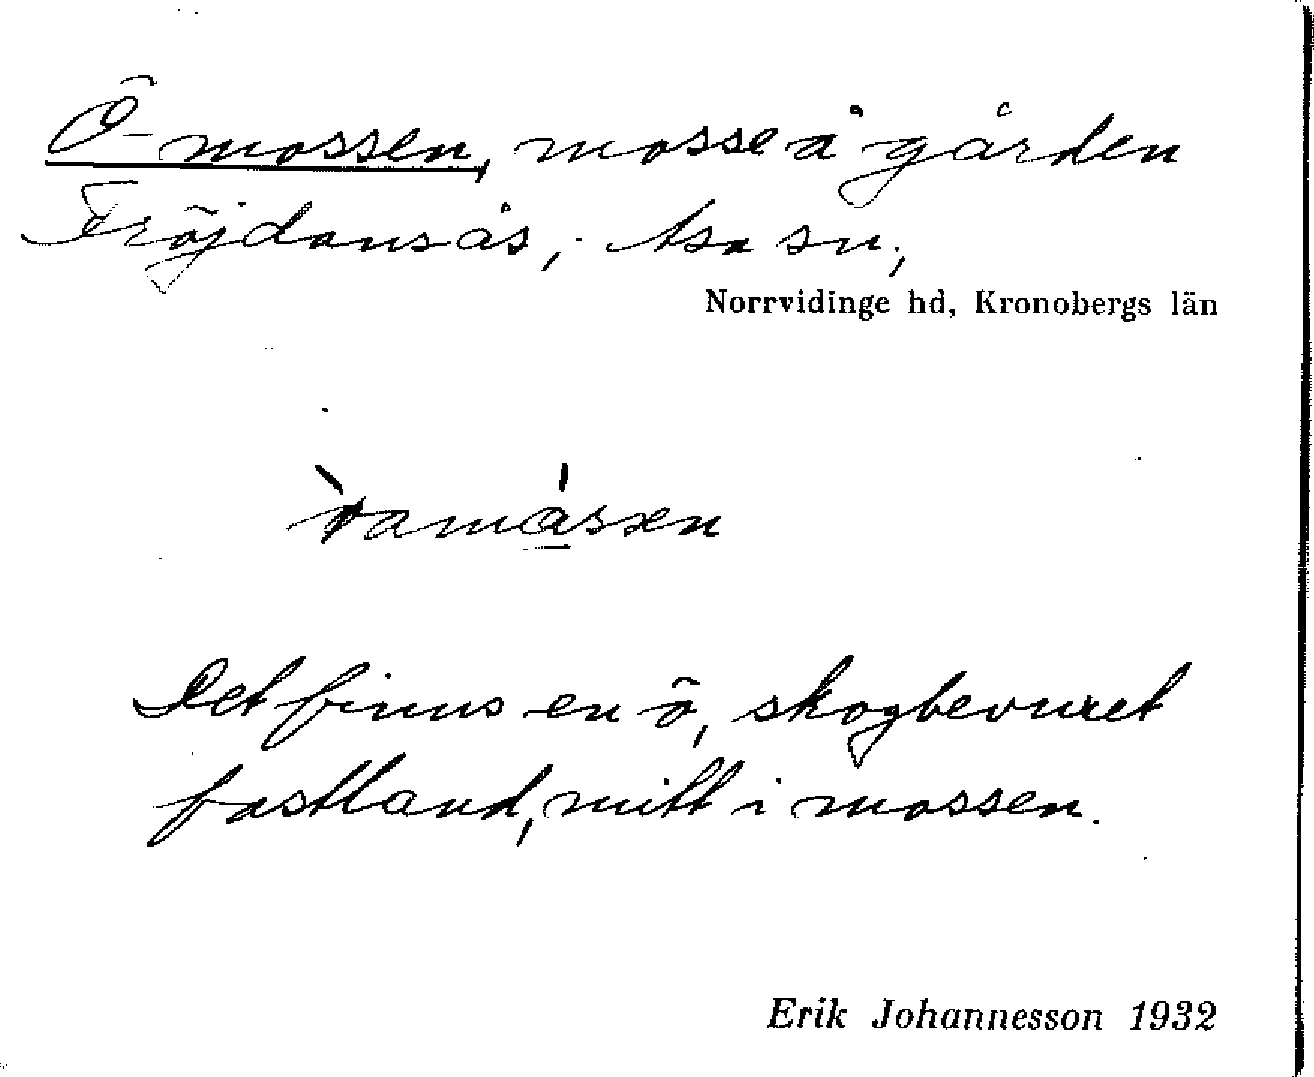 Ö-mossen, mosse å gården
Fröjdansås, Asa sn,
Norrvidinge hd, Kronobergs län
Det finns en ö, skogbevuxet
fastland, mitt i mossen.
Erik Johannesson 1932